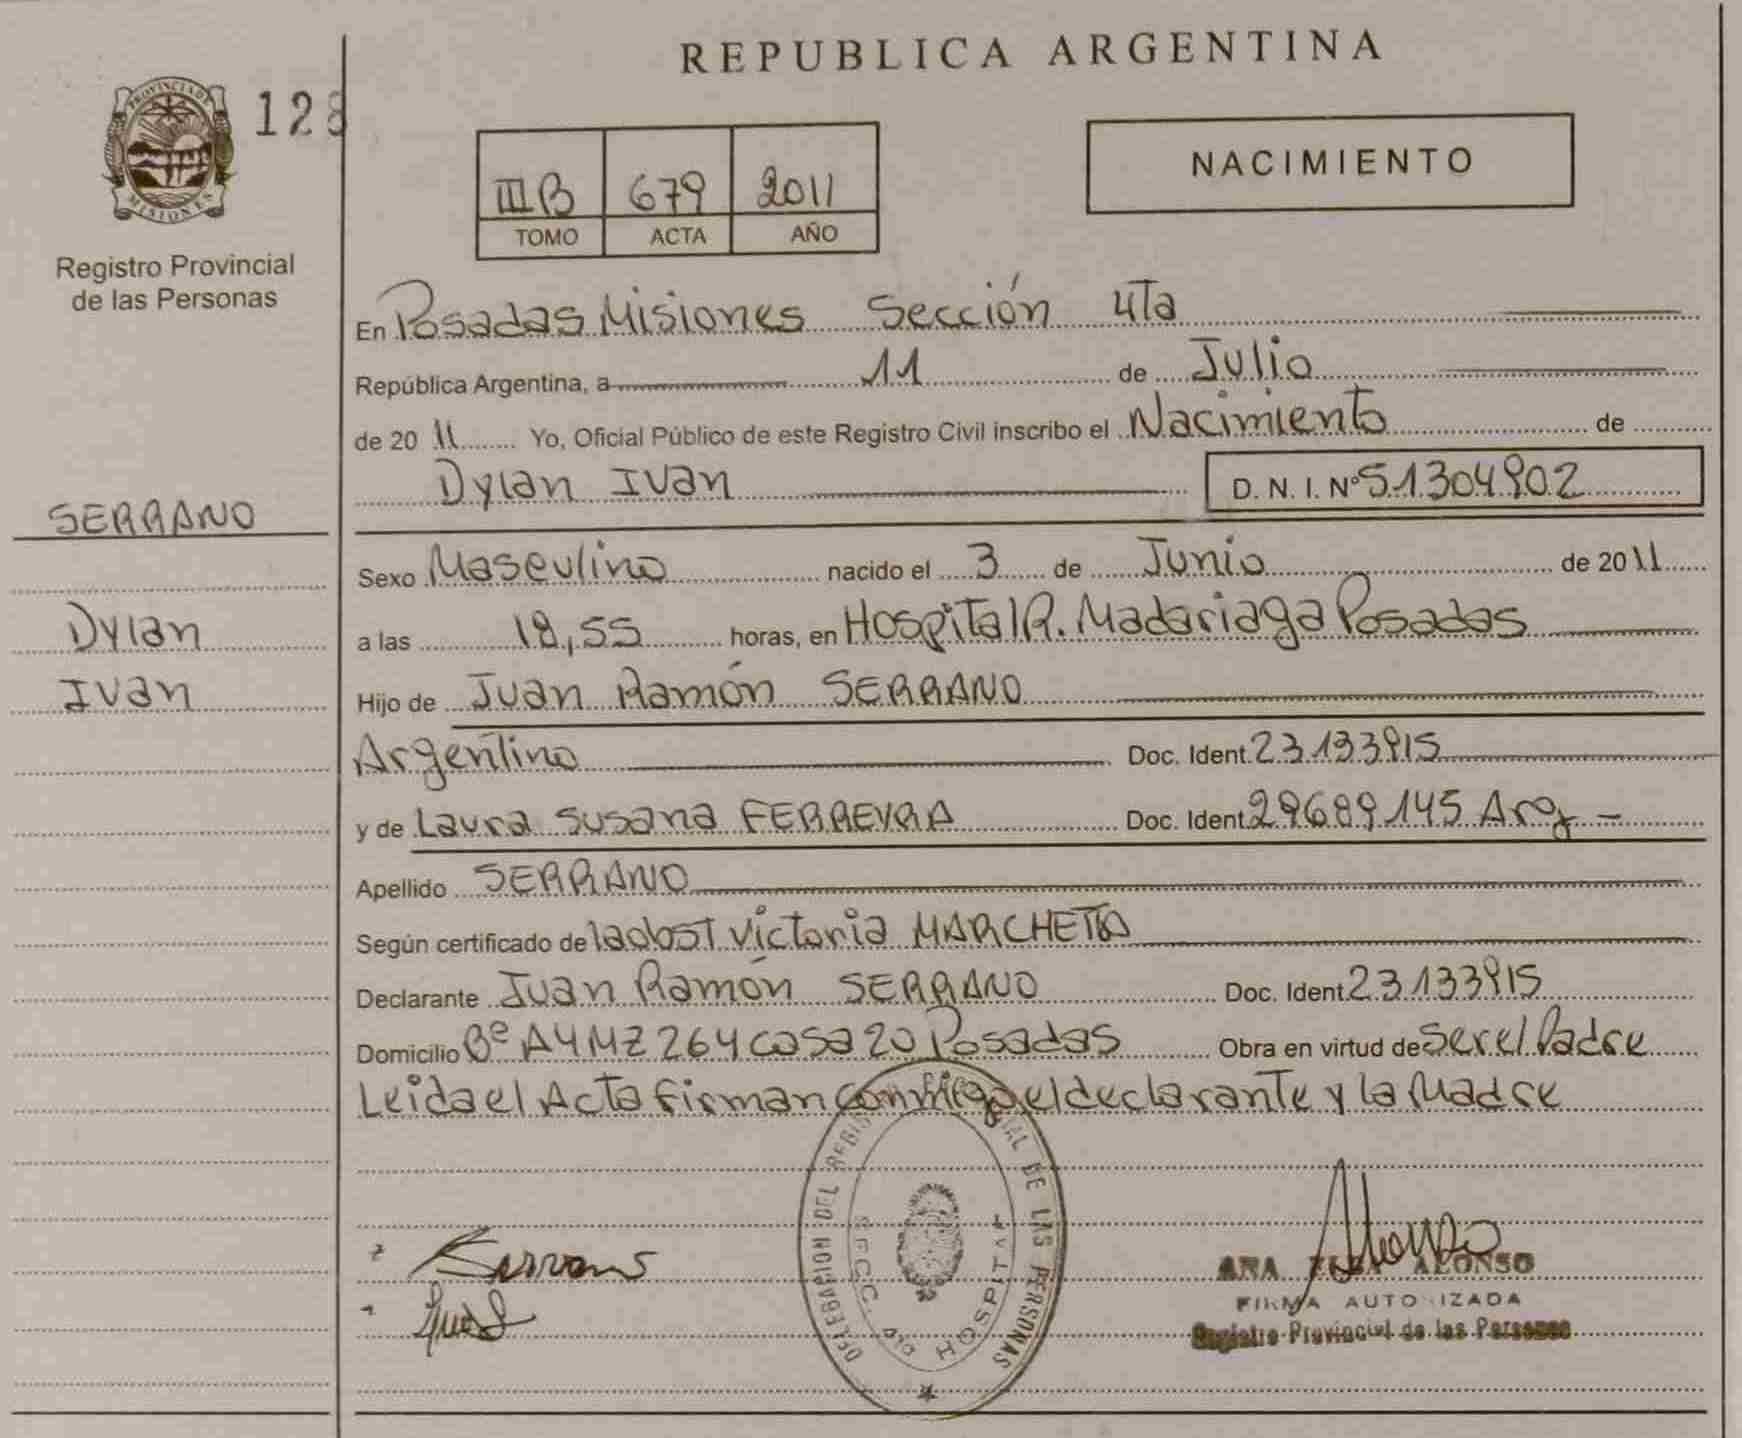 REPUBLICA ARGENTINA
PROVINCIA DE
MISIONES
128
Registro Provincial
de las Personas
III B 679 2011
TOMO ACTA AÑO
NACIMIENTO
En Posadas Misiones Sección 4Ta
República Argentina, a 11 de Julio
de 2011 Yo, Oficial Público de este Registro Civil inscribo el Nacimiento de
Dylan Ivan D. N. I. Nº 51304902
SERRANO
Dylan
Ivan
Sexo Masculino nacido el 3 de Junio de 2011
a las 18,55 horas, en Hospital R. Madariaga Posadas
Hijo de Juan Ramón SERRANO
Argentino Doc. Ident. 23.133915
y de Laura Susana FERREYRA Doc. Ident. 29689145 Arg -
Apellido SERRANO
Según certificado de la obst Victoria MARCHETTO
Declarante Juan Ramón SERRANO Doc. Ident. 23.133915
Domicilio Bº A4 MZ 264 casa 20 Posadas Obra en virtud de Ser el Padre
Leida el Acta firman conmigo el declarante y la Madre
DELEGACION DEL REGISTRO PROVINCIAL DE LAS PERSONAS
SECC. 4ta HOSPITAL
Serrano
ANA ALONSO
FIRMA AUTORIZADA
Registro Provincial de las Personas